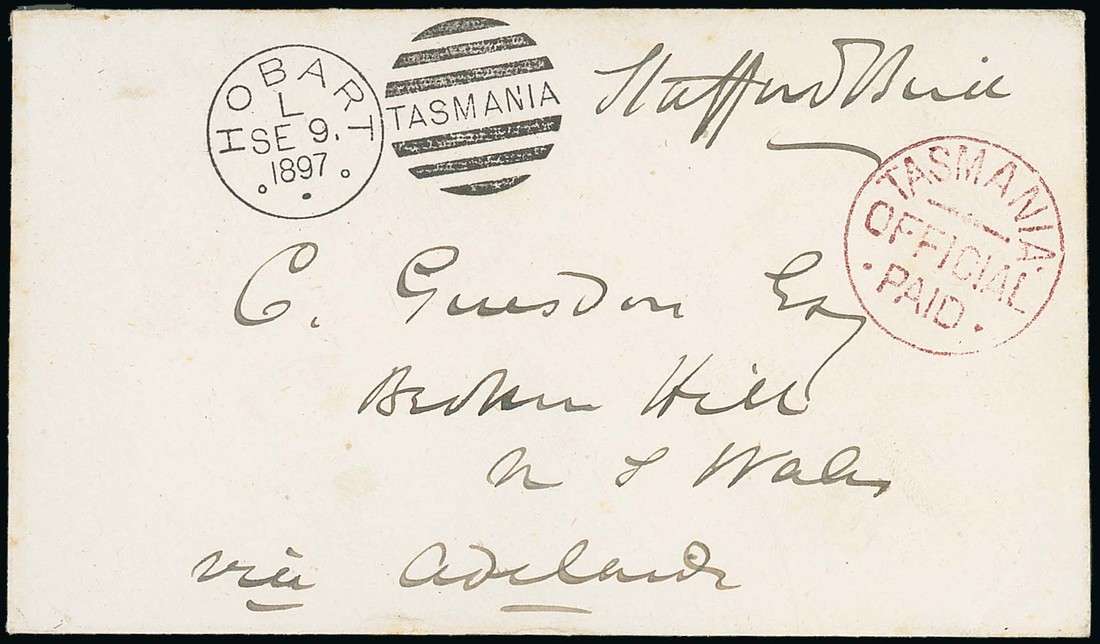 HOBART
L
SE 9.
1897
TASMANIA
Stafford Bird
TASMANIA
OFFICIAL
PAID
C. Guesdon Esq
Broken Hill
N S Wales
via Adelaide